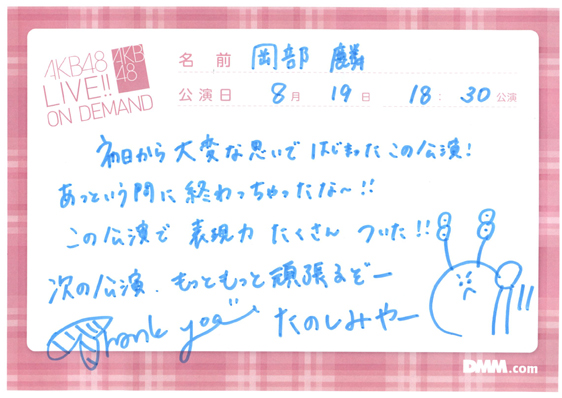 AKB48
LIVE!!
ON DEMAND
AKB
48
名前 岡部 麟
公演日 8月 19日 18:30公演
初日から大変な思いではじまったこの公演!
あっという間に終わっちゃったな〜!!
この公演で表現力たくさんついた!!
次の公演.もっともっと頑張るぞー
Thank you
たのしみやー
DMM.com